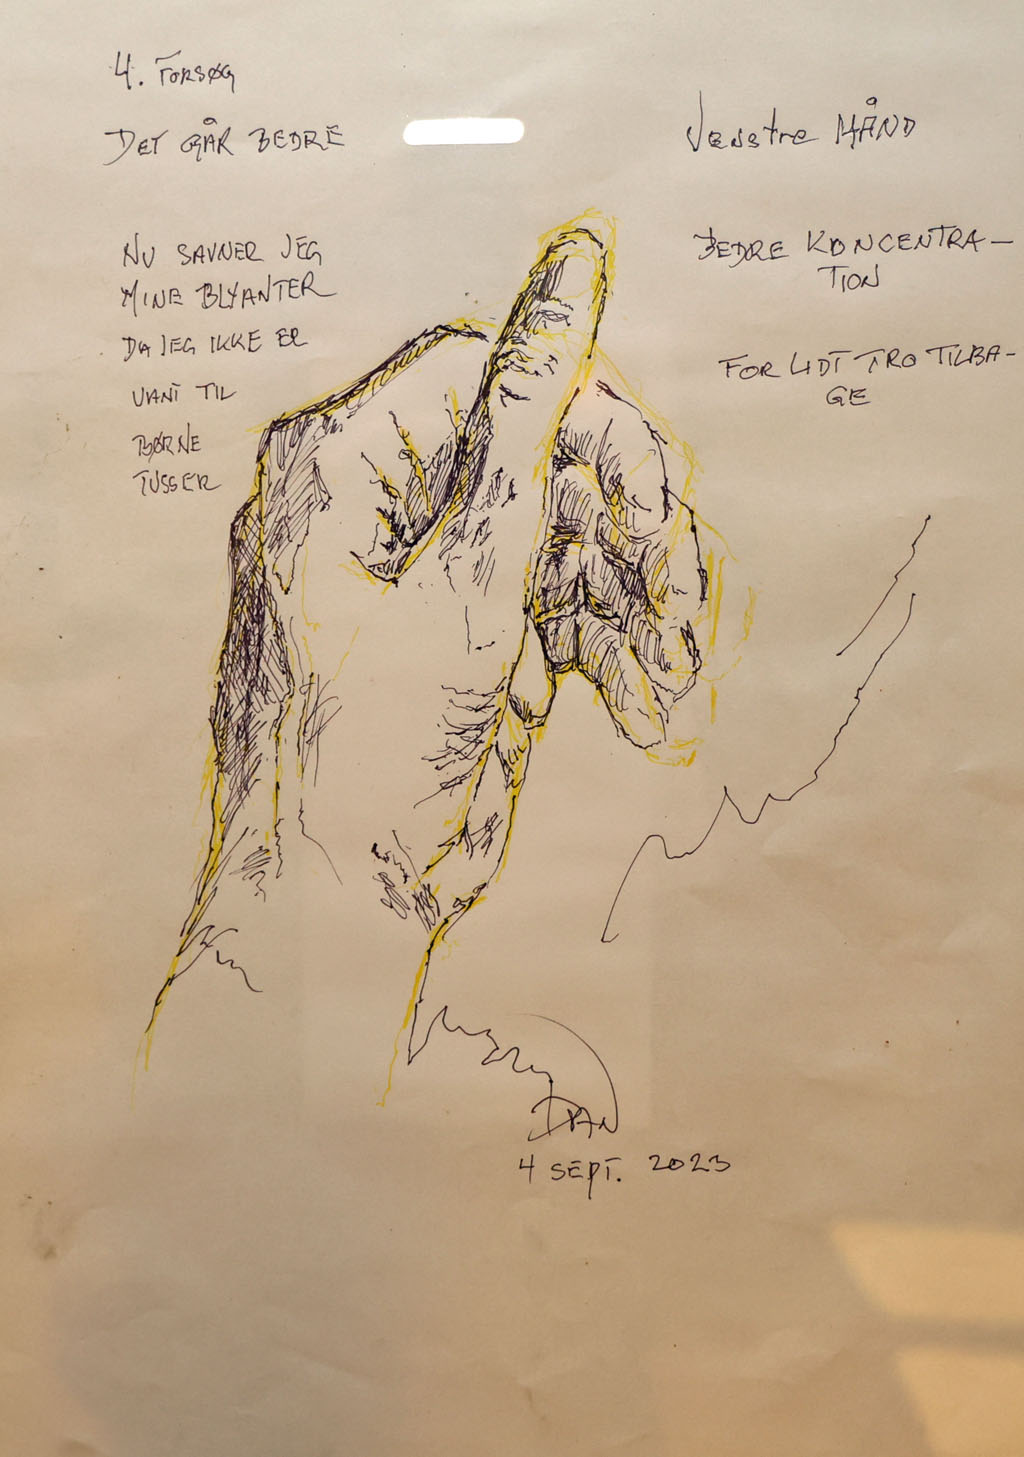 4. FORSØG
DET GÅR BEDRE
NU SAVNER JEG
MINE BLYANTER
DA JEG IKKE ER
VANT TIL
BØRNE
TUSSER
Venstre HÅND
BEDRE KONCENTRA-
TION
FOR LIDT TRO TILBA-
GE
DAN
4 SEPT. 2023